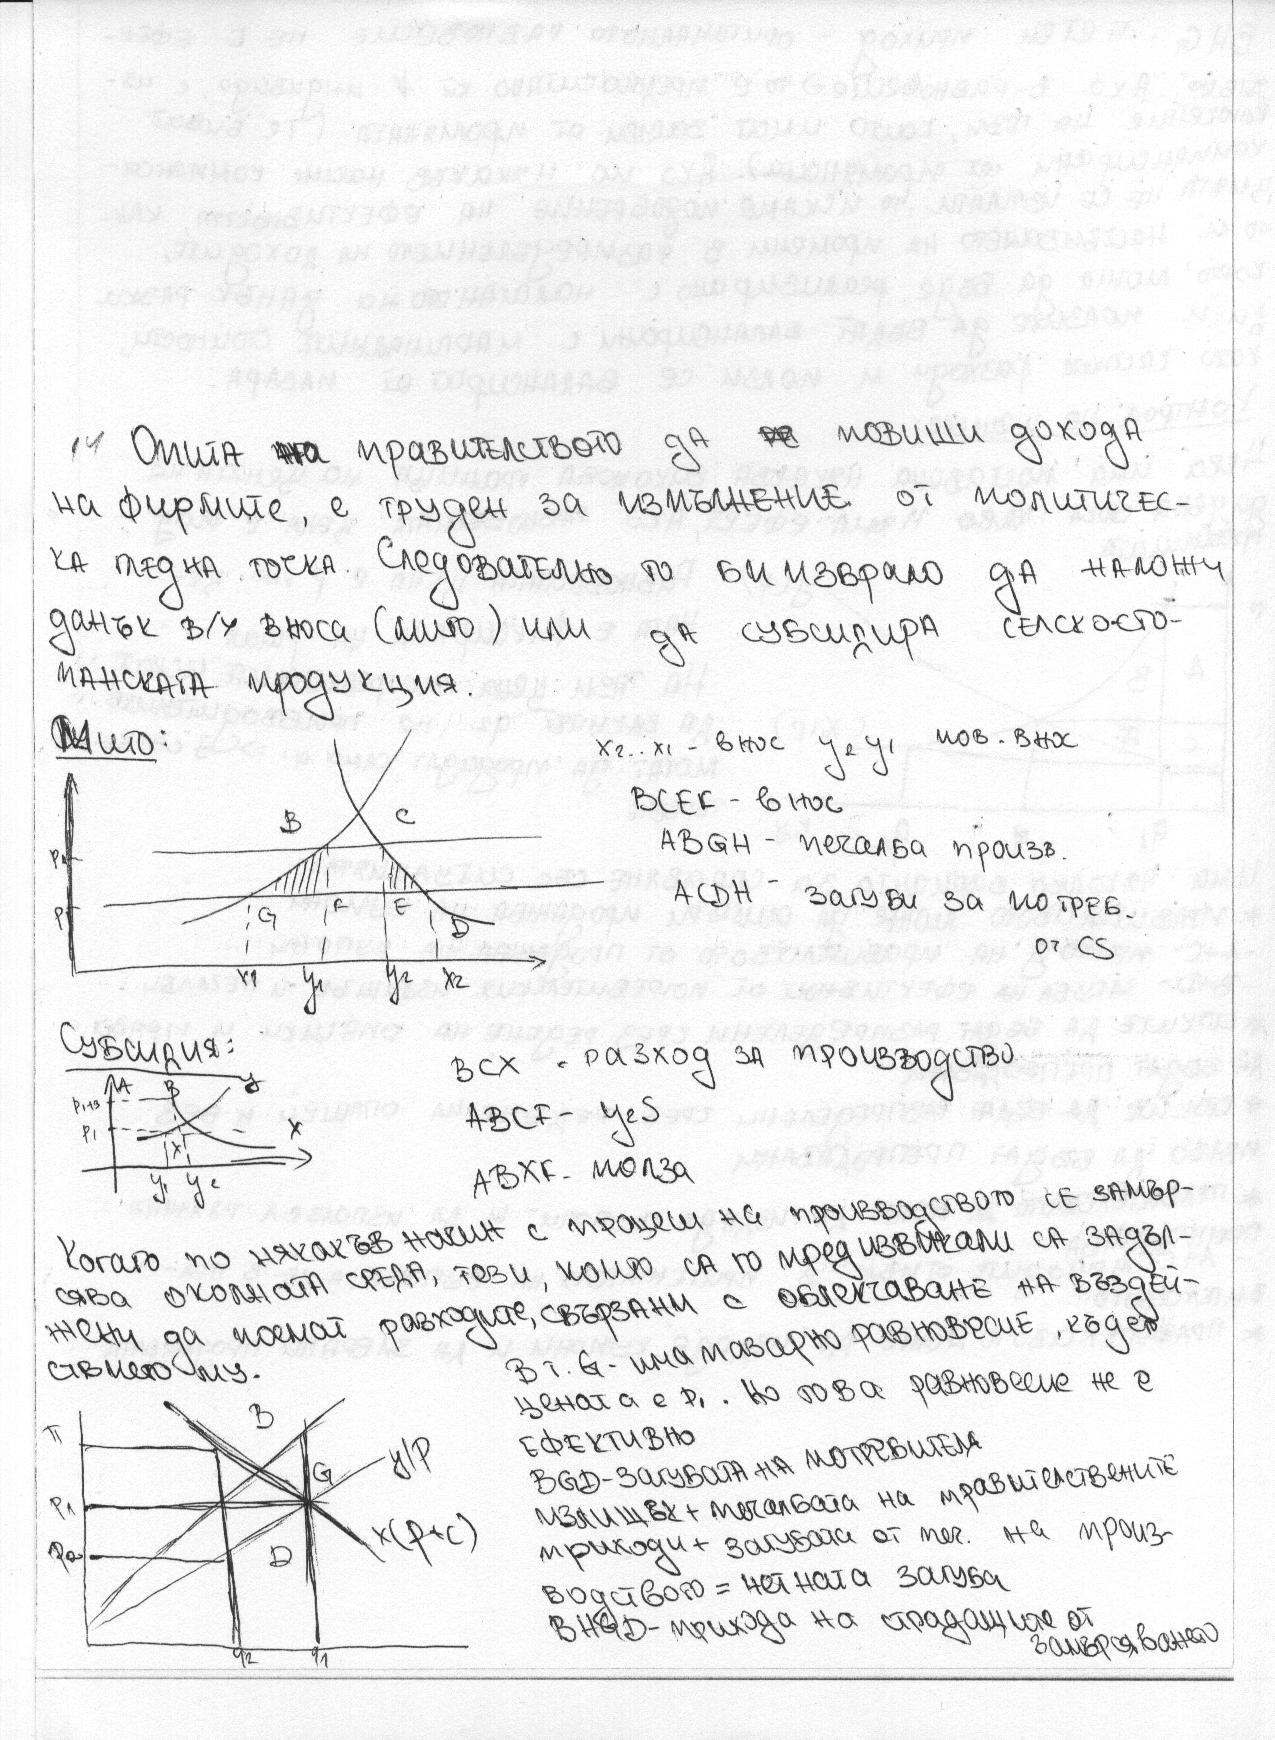 14 Опита на правителството да повиши дохода
на фирмите, е труден за изпълнение от политичес-
ка гледна точка. Следователно то би избрало да наложи
данък в/у вноса (мито) или да субсидира селскосто-
панската продукция.
Мито:
x2..x1 - внос y2y1 нов. внос
BCEF - внос
ABGH - печалба произв.
ACDH - загуби за потреб.
от CS
B C
P
P
G F E D
x1 y1 y2 x2
Субсидия:
BCX - разход за производство
ABCF - y2S
ABXF - полза
A B y
P1+S
P1
X x
y1 y2
Когато по някакъв начин с процеси на производството се замър-
сява околната среда, този, които са го предизвикали са задъл-
жени да поемат разходите, свързани с облекчаване на въздей-
ствието му.
В т. G - има пазарно равновесие, където
цената е P1. Но това равновесие не е
ефективно
BGD - загубата на потребителя
излишък + печалбата на правителствените
приходи + загубата от печ. на произ-
водството = нетната загуба
BHGD - прихода на страдащите от
замърсяването
П B
P1 G y/P
P2 D x(p+c)
q2 q1